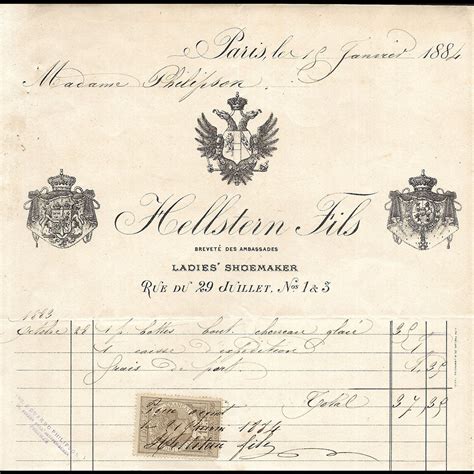 Paris, le 18 Janvier 1884
Madame Philipson
Hellstern Fils
BREVETÉ DES AMBASSADES
LADIES' SHOEMAKER
RUE DU 29 JUILLET, Nos 1 & 3
1883
Octobre 26 1 p bottes bout chevreau glacé 35
1 caisse d'expédition 1
Frais de port 1.35
Total 37,35
Pour acquit
1884
Hellstern fils